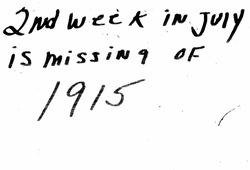 2nd week in July
is missing of
1915